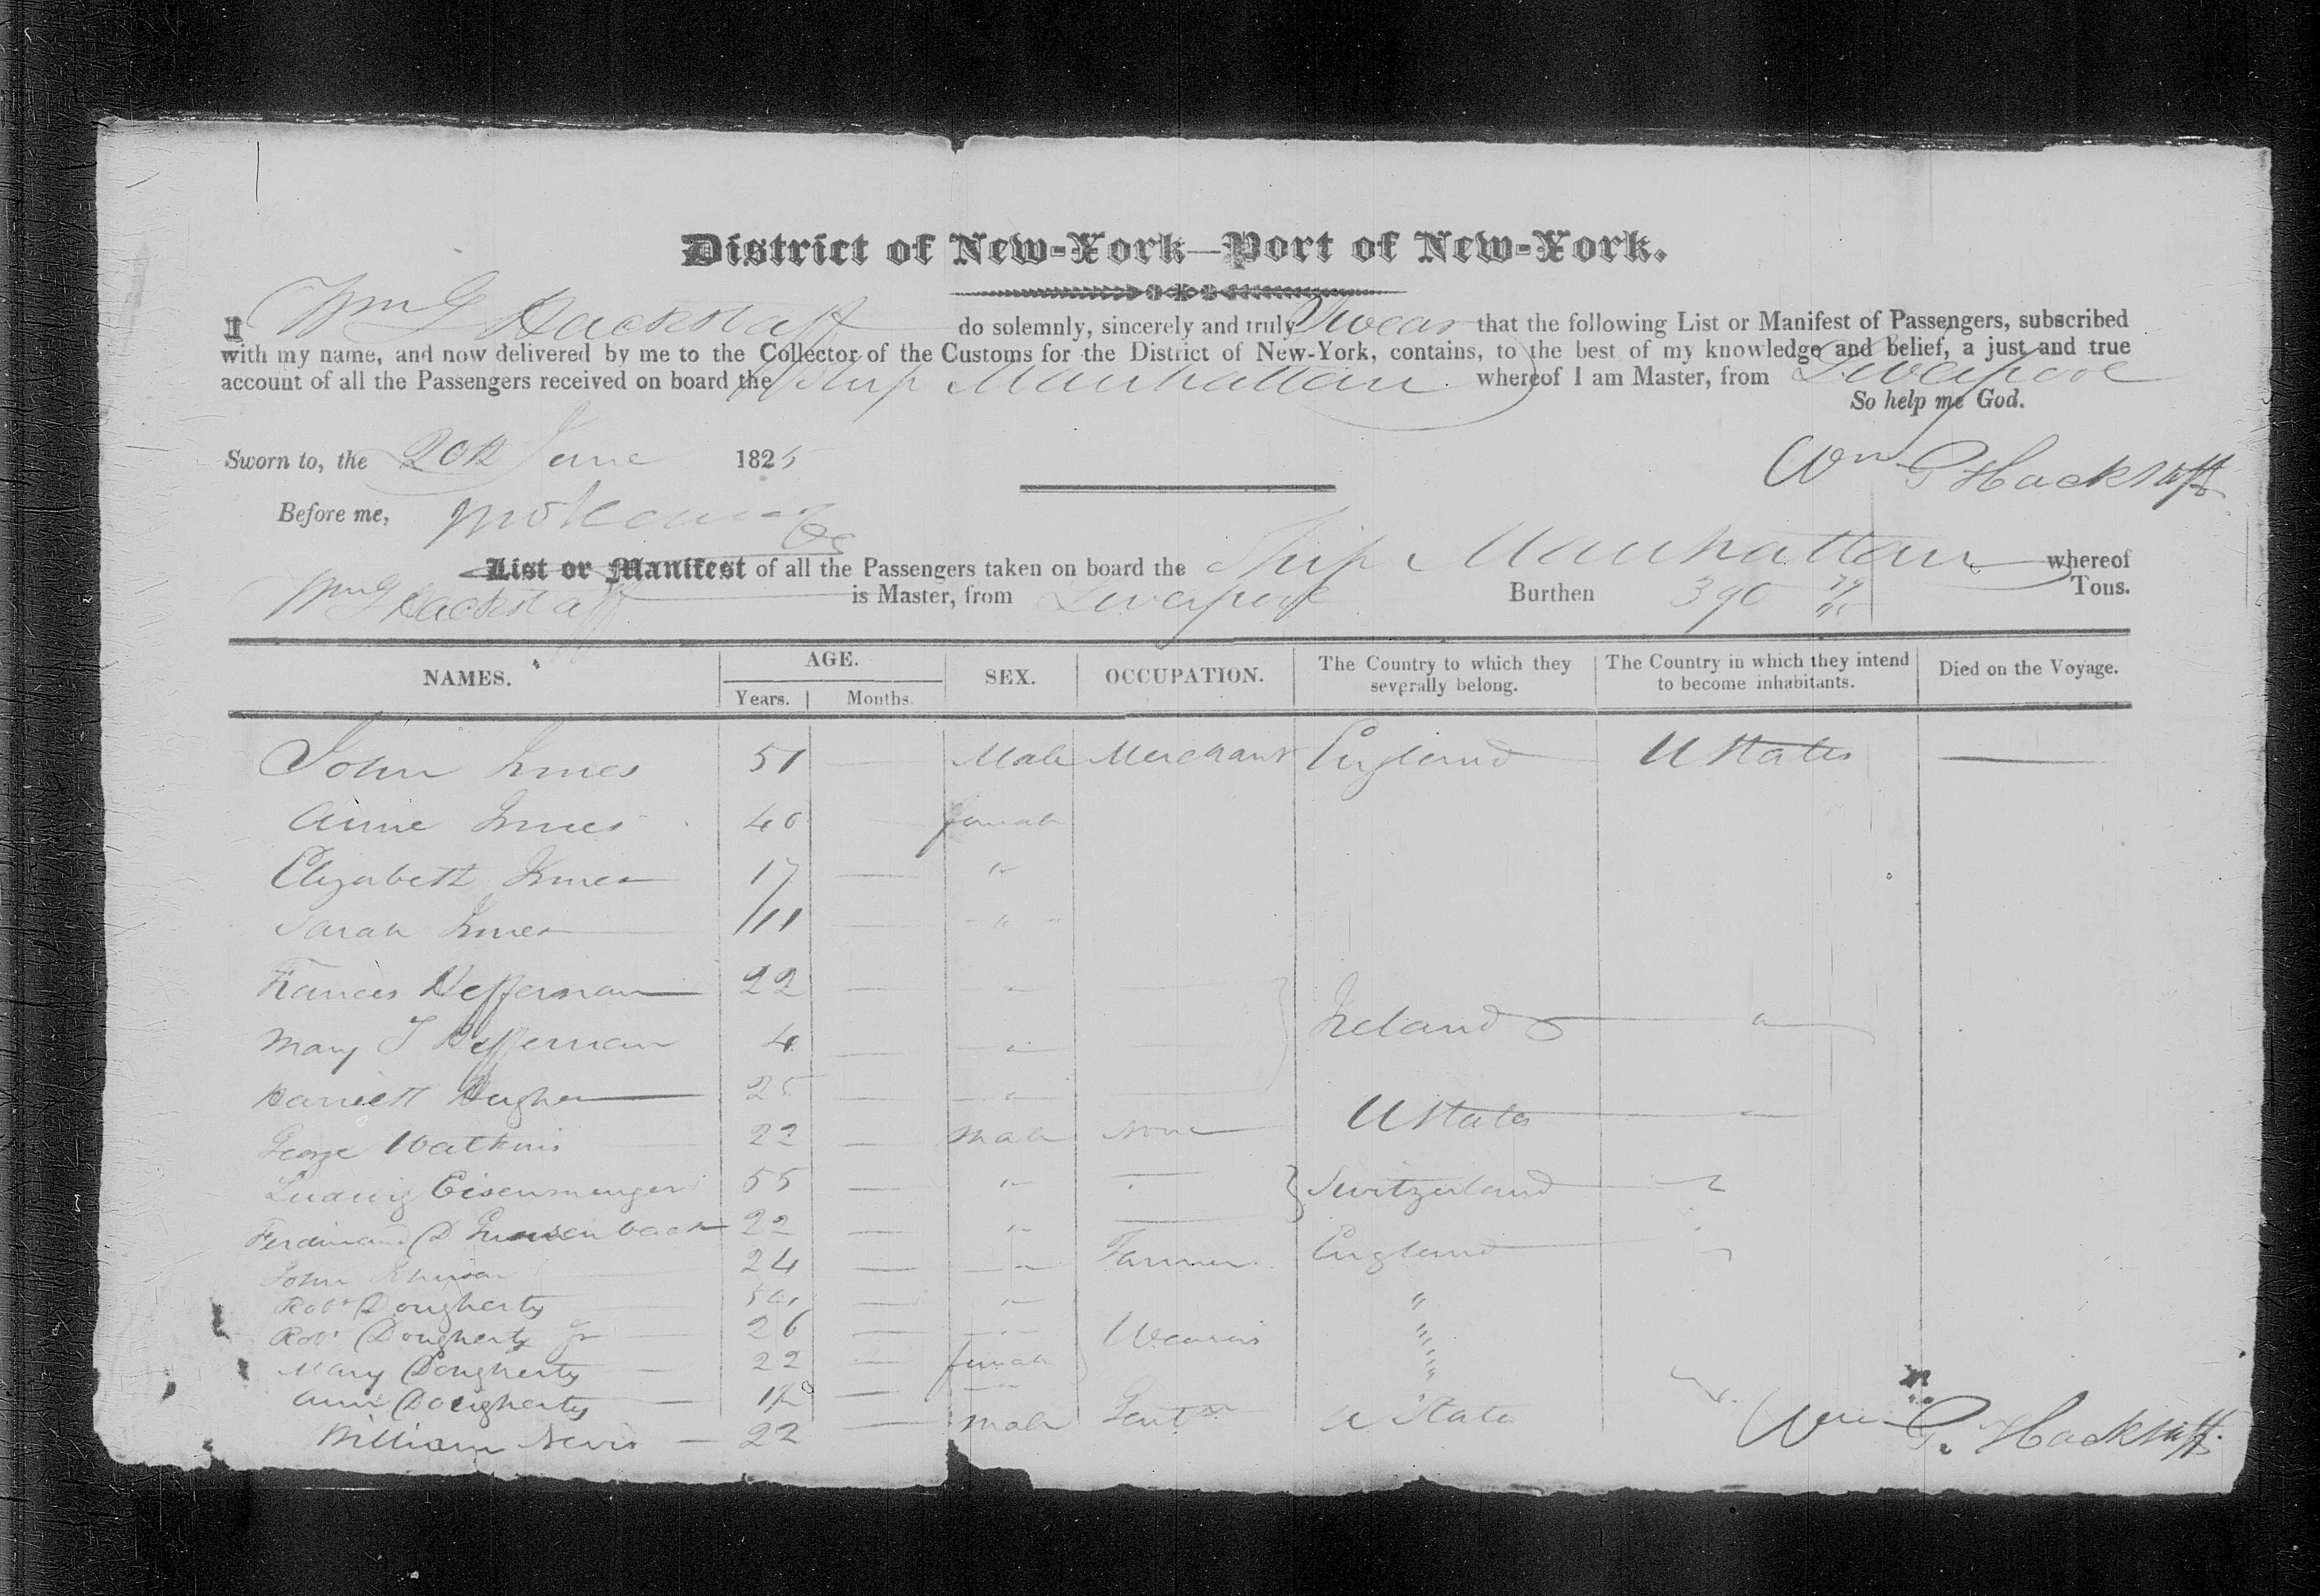 District of New-York—Port of New-York.
I Wm G Hackstaff do solemnly, sincerely and truly Swear that the following List or Manifest of Passengers, subscribed
with my name, and now delivered by me to the Collector of the Customs for the District of New-York, contains, to the best of my knowledge and belief, a just and true
account of all the Passengers received on board the Ship Manhattan whereof I am Master, from Liverpool
So help me God.
Sworn to, the 20th June 1825
Wm G Hackstaff
Before me,
List or Manifest of all the Passengers taken on board the Ship Manhattan whereof
Wm G Hackstaff is Master, from Liverpool Burthen 390 Tons.
NAMES. AGE. SEX. OCCUPATION. The Country to which they severally belong. The Country in which they intend to become inhabitants. Died on the Voyage.
Years. Months.
John Innes 51 — Male Merchant England U States —
Anne Innes 40 female
Elizabeth Innes 17 — "
Sarah Innes 11 — "
Frances Heffernan 22 — "
Mary T Heffernan 4 — " Ireland "
Harriett Hughes 25 — "
U States "
George Watkins 22 — Male None
Ludwig Eisenmenger 55 — " — Switzerland "
Ferdinand D 22 — " —
John 24 — " Farmer England "
Robt Dougherty — " "
Robt Dougherty Jr 26 — " Weavers "
Mary Dougherty 22 — female "
Ann Dougherty — " "
William Nevis 22 — Male Gentn U States
Wm G. Hackstaff